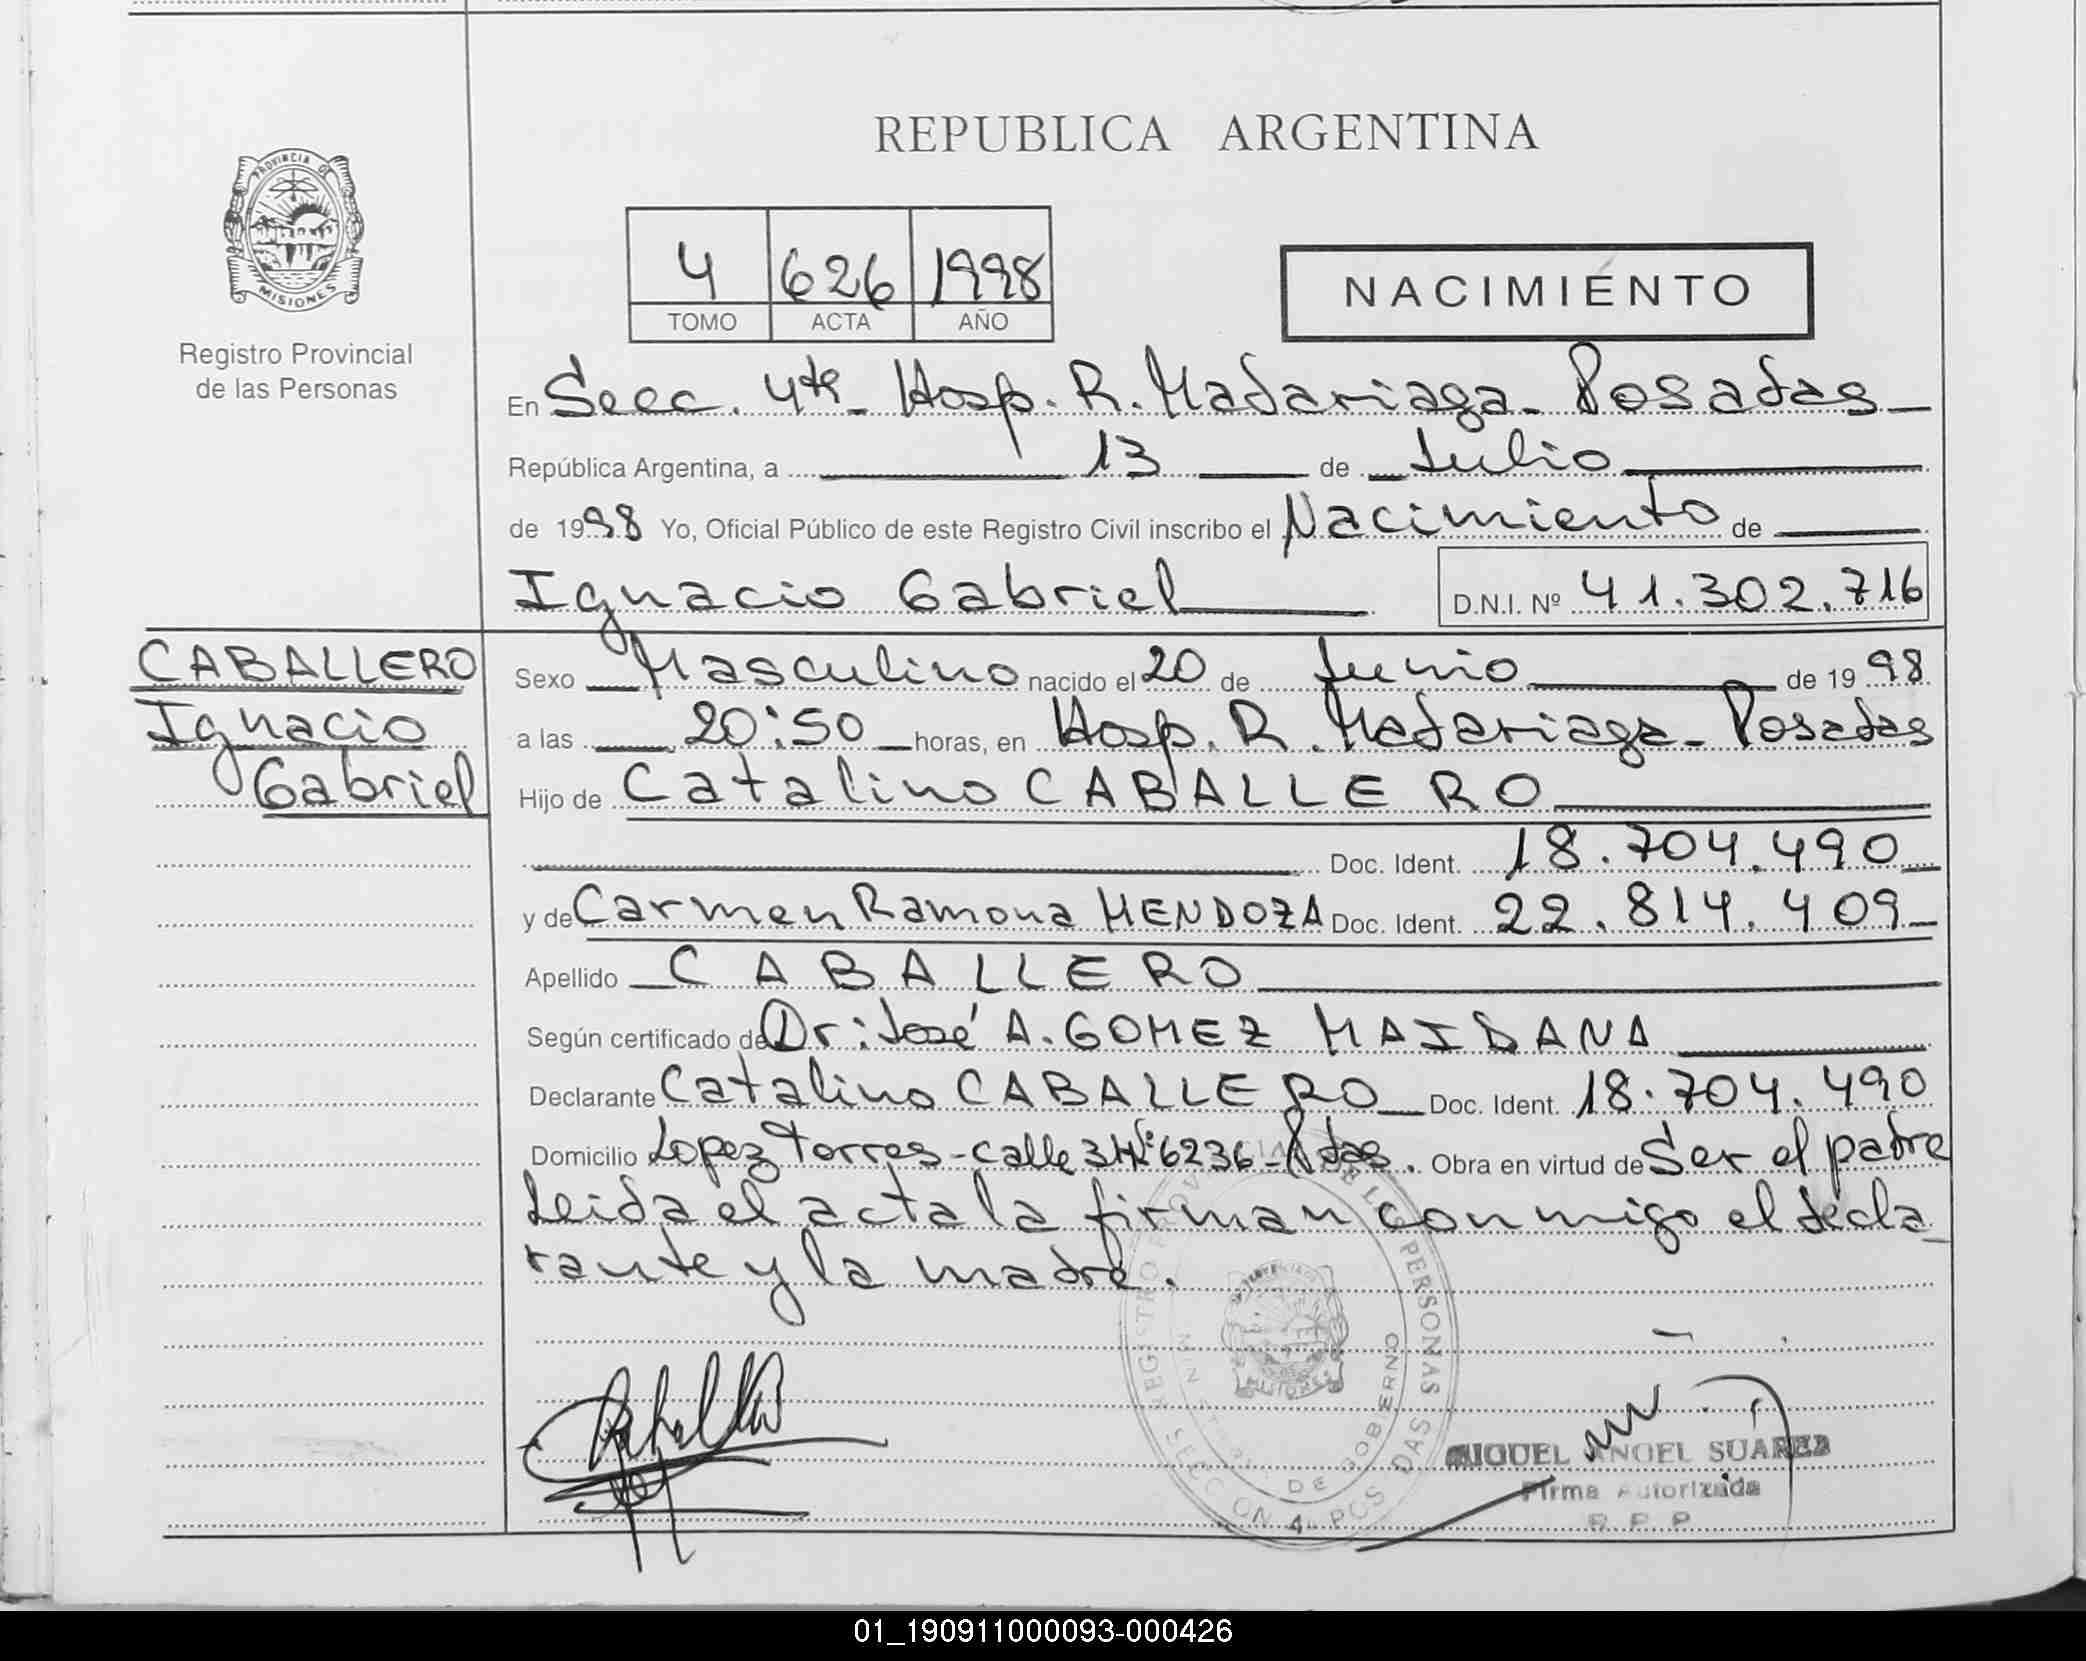 REPUBLICA ARGENTINA
PROVINCIA DE
MISIONES
Registro Provincial
de las Personas
4 626 1998
TOMO ACTA AÑO
NACIMIENTO
En Secc. 4ta - Hosp. R. Madariaga - Posadas
República Argentina, a 13 de Julio
de 1998 Yo, Oficial Público de este Registro Civil inscribo el Nacimiento de
Ignacio Gabriel D.N.I. Nº 41.302.716
CABALLERO
Ignacio
Gabriel
Sexo Masculino nacido el 20 de Junio de 1998
a las 20:50 horas, en Hosp. R. Madariaga - Posadas
Hijo de Catalino CABALLERO
Doc. Ident. 18.704.490
y de Carmen Ramona MENDOZA Doc. Ident. 22.814.409
Apellido CABALLERO
Según certificado de Dr: José A. GOMEZ MAIDANA
Declarante Catalino CABALLERO Doc. Ident. 18.704.490
Domicilio Lopez Torres - Calle 34 Nº 6236 - Pdas. Obra en virtud de Ser el padre
Leida el acta la firman conmigo el decla
rante y la madre.
REGISTRO PROVINCIAL DE LAS PERSONAS
MINISTERIO DE GOBIERNO
SECCION 4 POSADAS
MIGUEL ANGEL SUAREZ
Firma Autorizada
R.P.P.
01_190911000093-000426